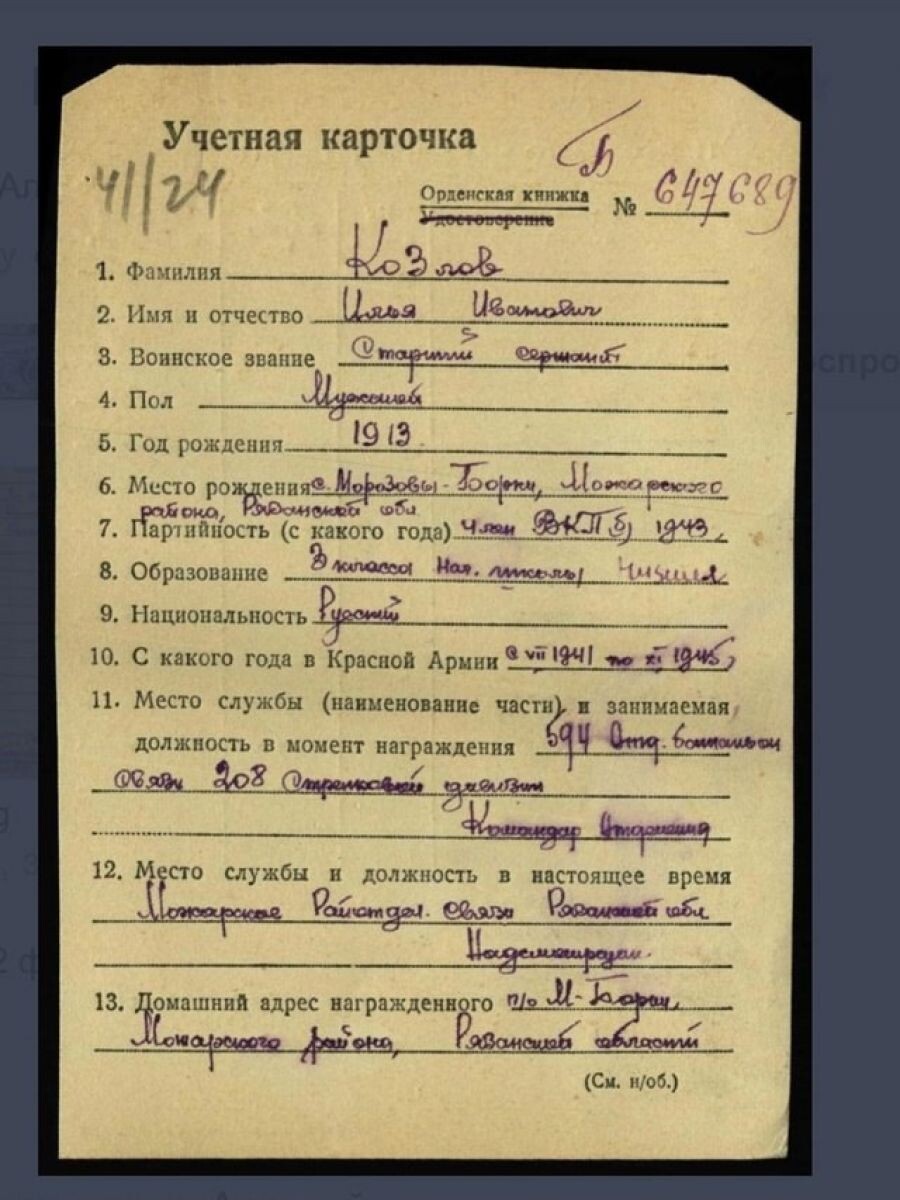 Учетная карточка
41/24
Б
Орденская книжка
Удостоверение
№ 647689
1. Фамилия Козлов
2. Имя и отчество Илья Иванович
3. Воинское звание Старший сержант
4. Пол Мужской
5. Год рождения 1913
6. Место рождения с. Морозовы-Борки, Можарского
района, Рязанской обл
7. Партийность (с какого года) член ВКП(б) 1943,
8. Образование 3 класса Нач. школы
9. Национальность Русский
10. С какого года в Красной Армии с VII 1941 по XI 1945,
11. Место службы (наименование части) и занимаемая
должность в момент награждения 594 Отд. батальон
связи 208 Стрелковой дивизии
Командир Отделения
12. Место службы и должность в настоящее время
Можарское Райотдел. связи Рязанской обл
13. Домашний адрес награжденного п/о М-Борки,
Можарского района, Рязанской области
(См. н/об.)